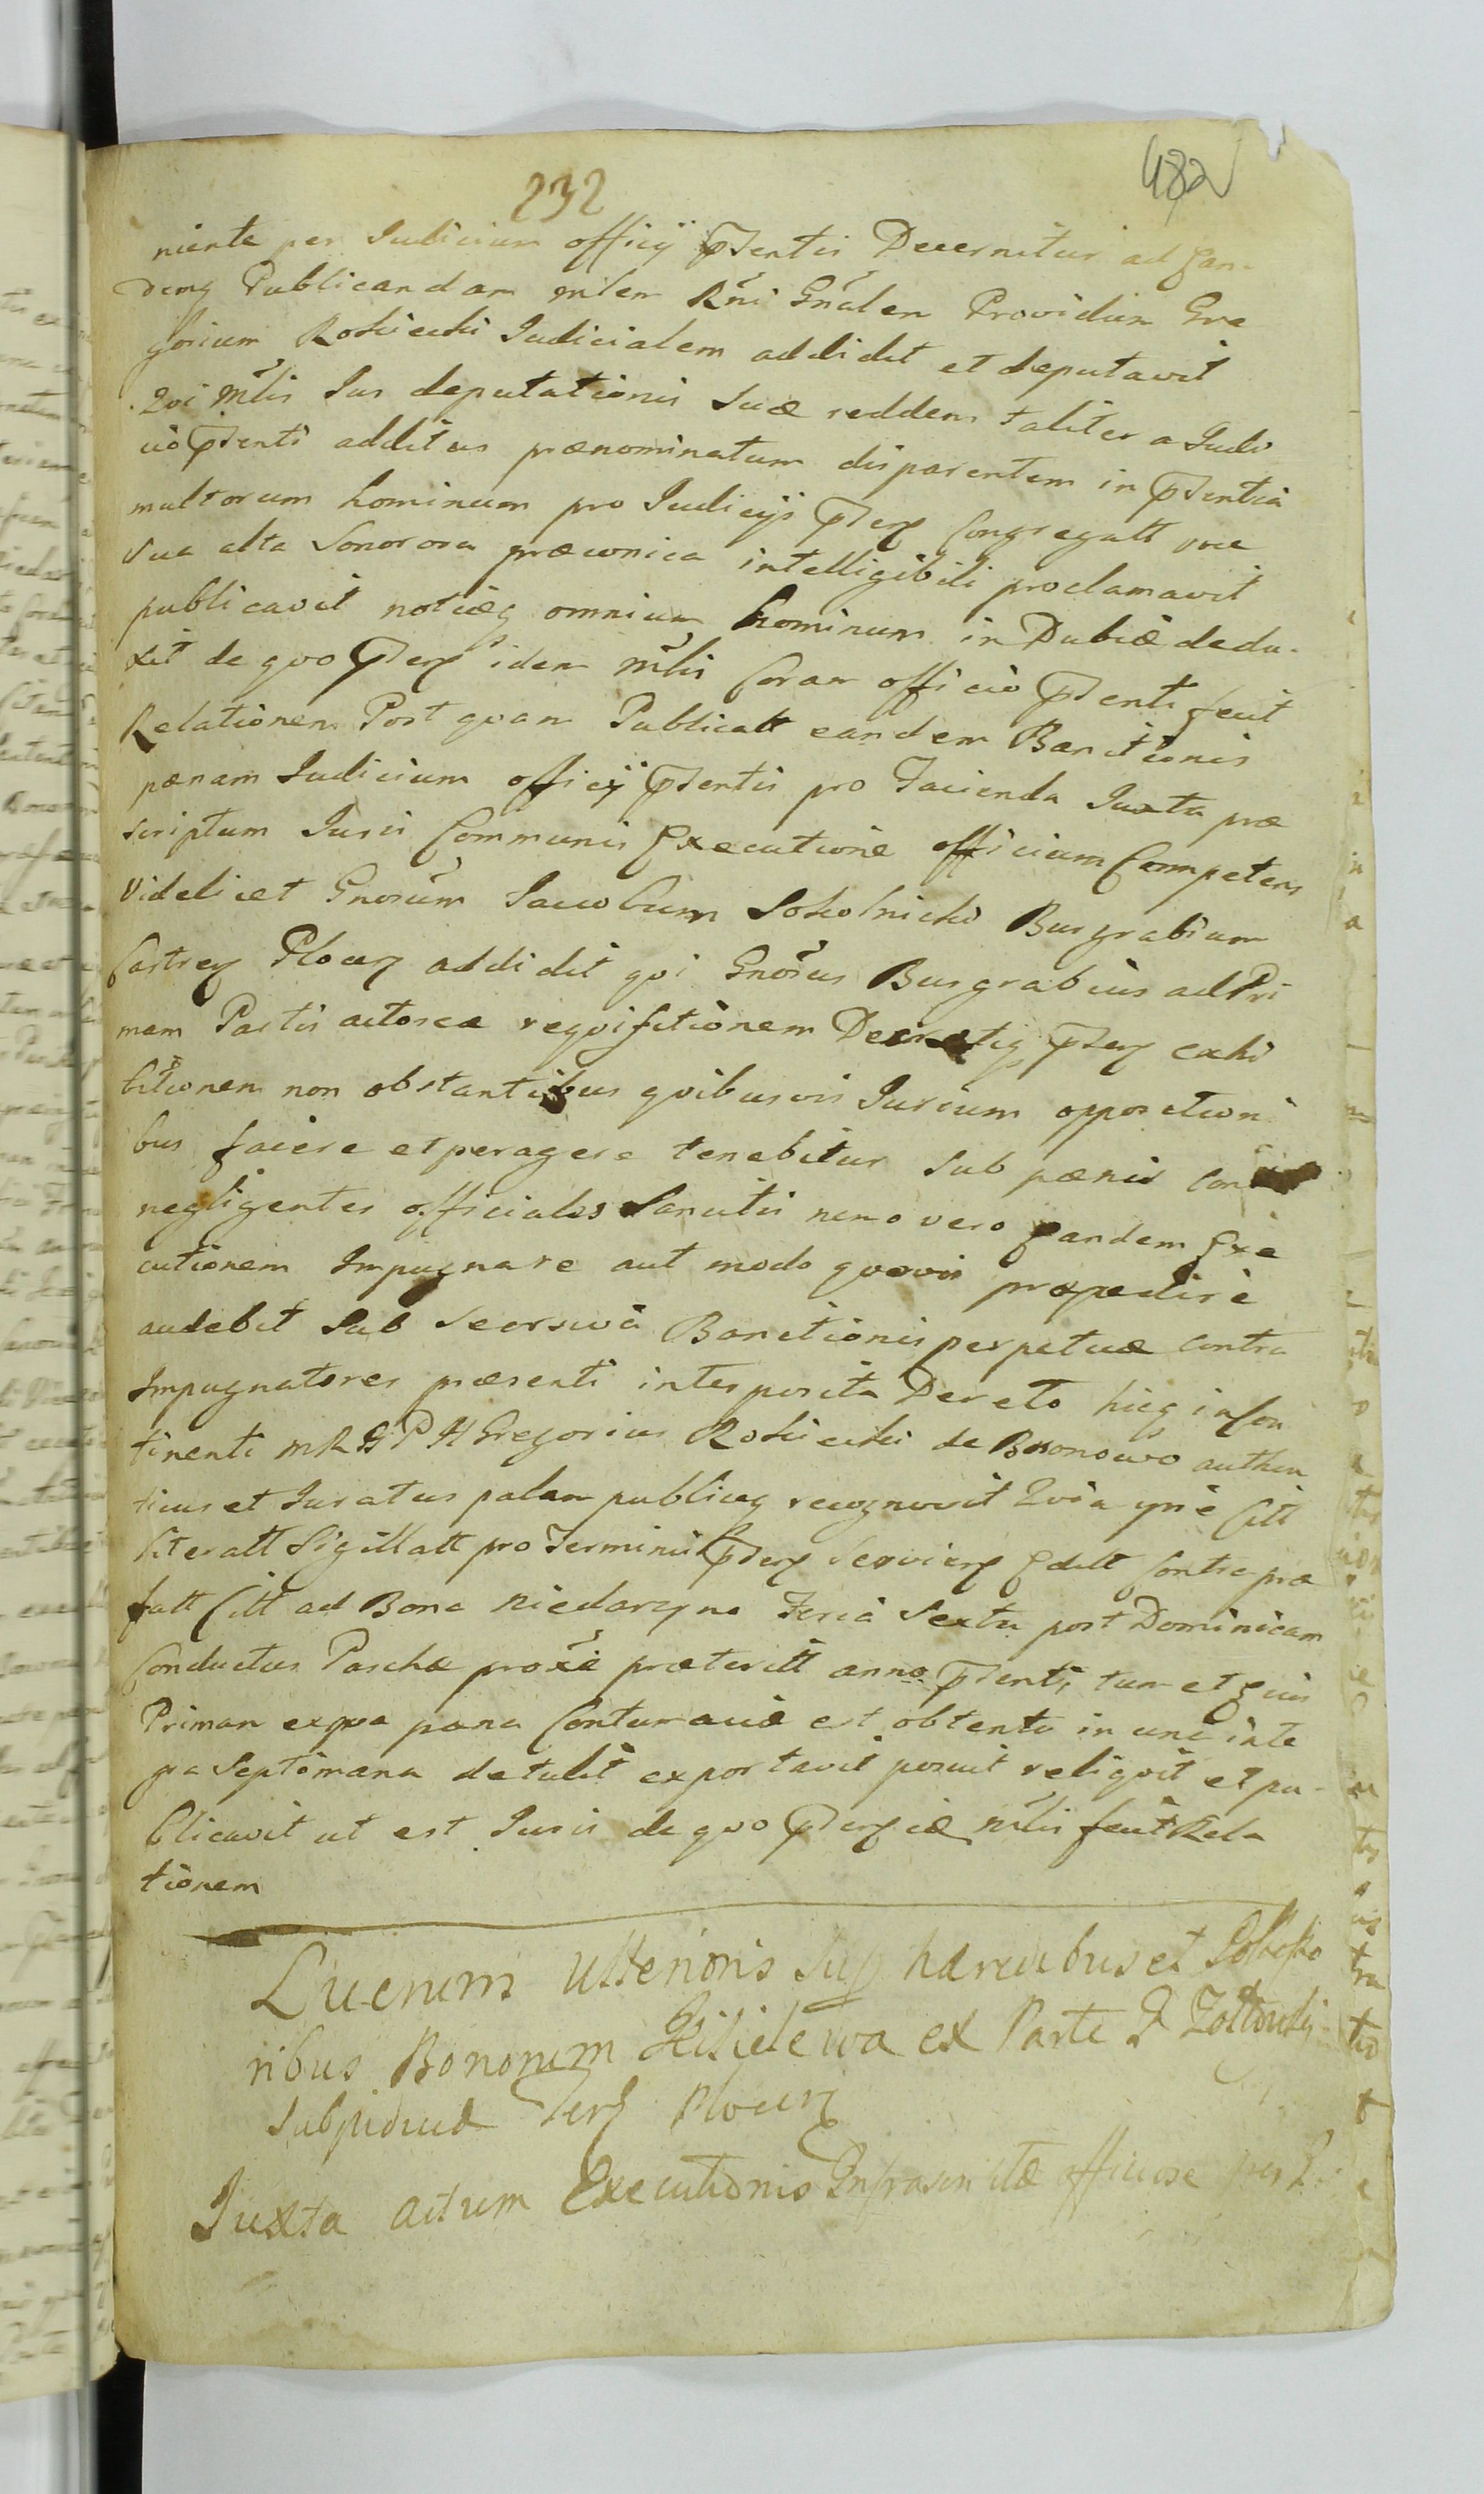 232
482
niente per Iudicium officij pntis Decernitur ad Ean-
demq Publicandam mlem Rni Gnalem Providum Gre
gorium Rościecki Iudicialem addidit et deputavit
Qui mlis Ius deputationis suæ reddens taliter a Iudi
cio pnti additus prænominatum disparentem in pntia
multorum hominum pro Iudicijs pterz Congregatt voce
sua alta Sonorosa præconica intelligibili proclamavit
publicavit notiãq omnium hominum in Dubiæ dedu-
xit de quo pterz idem mlis Coram officio pnti fecit
Relationem Post quam Publicatt eandem Banitionis
pænam Iudicium officij pntis pro Facienda Iuxta præ
scriptum Iuris Communis Executione officium Competens
Videlicet Gnosum Iacobum Sokolnicki Burgrabium
Castrez Plocez addidit qui Gnosus Burgrabius ad Pri
mam Partis actoreæ requisitionem pterz exhi
bitionem non obstantibus quibusvis Iurium oppositioni
bus facere et peragere tenebitur sub pænis
negligentes officiales Sancitis nemo vero Eandem Exe
cutionem Impugnare aut modo quovis præpedire
audebit Sub Seorsiva Banitionis perpetuæ contra
Impugnatores præsenti interposita Dereto hicq in Con
tinenti M R G P H Gregorius Rościecki de authen
ticus et Iuratus palam publiceq recognovit Quia ipse Citt
literatt Sigillatt pro Terminis pterz Servienz Editt Contra præ
fatt Citt ad Bona Niedarzyno Feria Sexta post Dominicam
Conductus Paschæ proxie præteritt anno pnti, tum et Eius
Primam ex qua pæna Contumaciæ est obtenta in una inte
gra Septimana detulit exportavit posuit reliquit et pu-
blicavit ut est Iuris de quo pterz mlis fecit Rela
tionem
Lucrum Ulterioris Sup hæredibus et
ribus Bonorum ex Parte
Terz Plocez
Iuxta actum Executionis Infrascriptæ officiose per